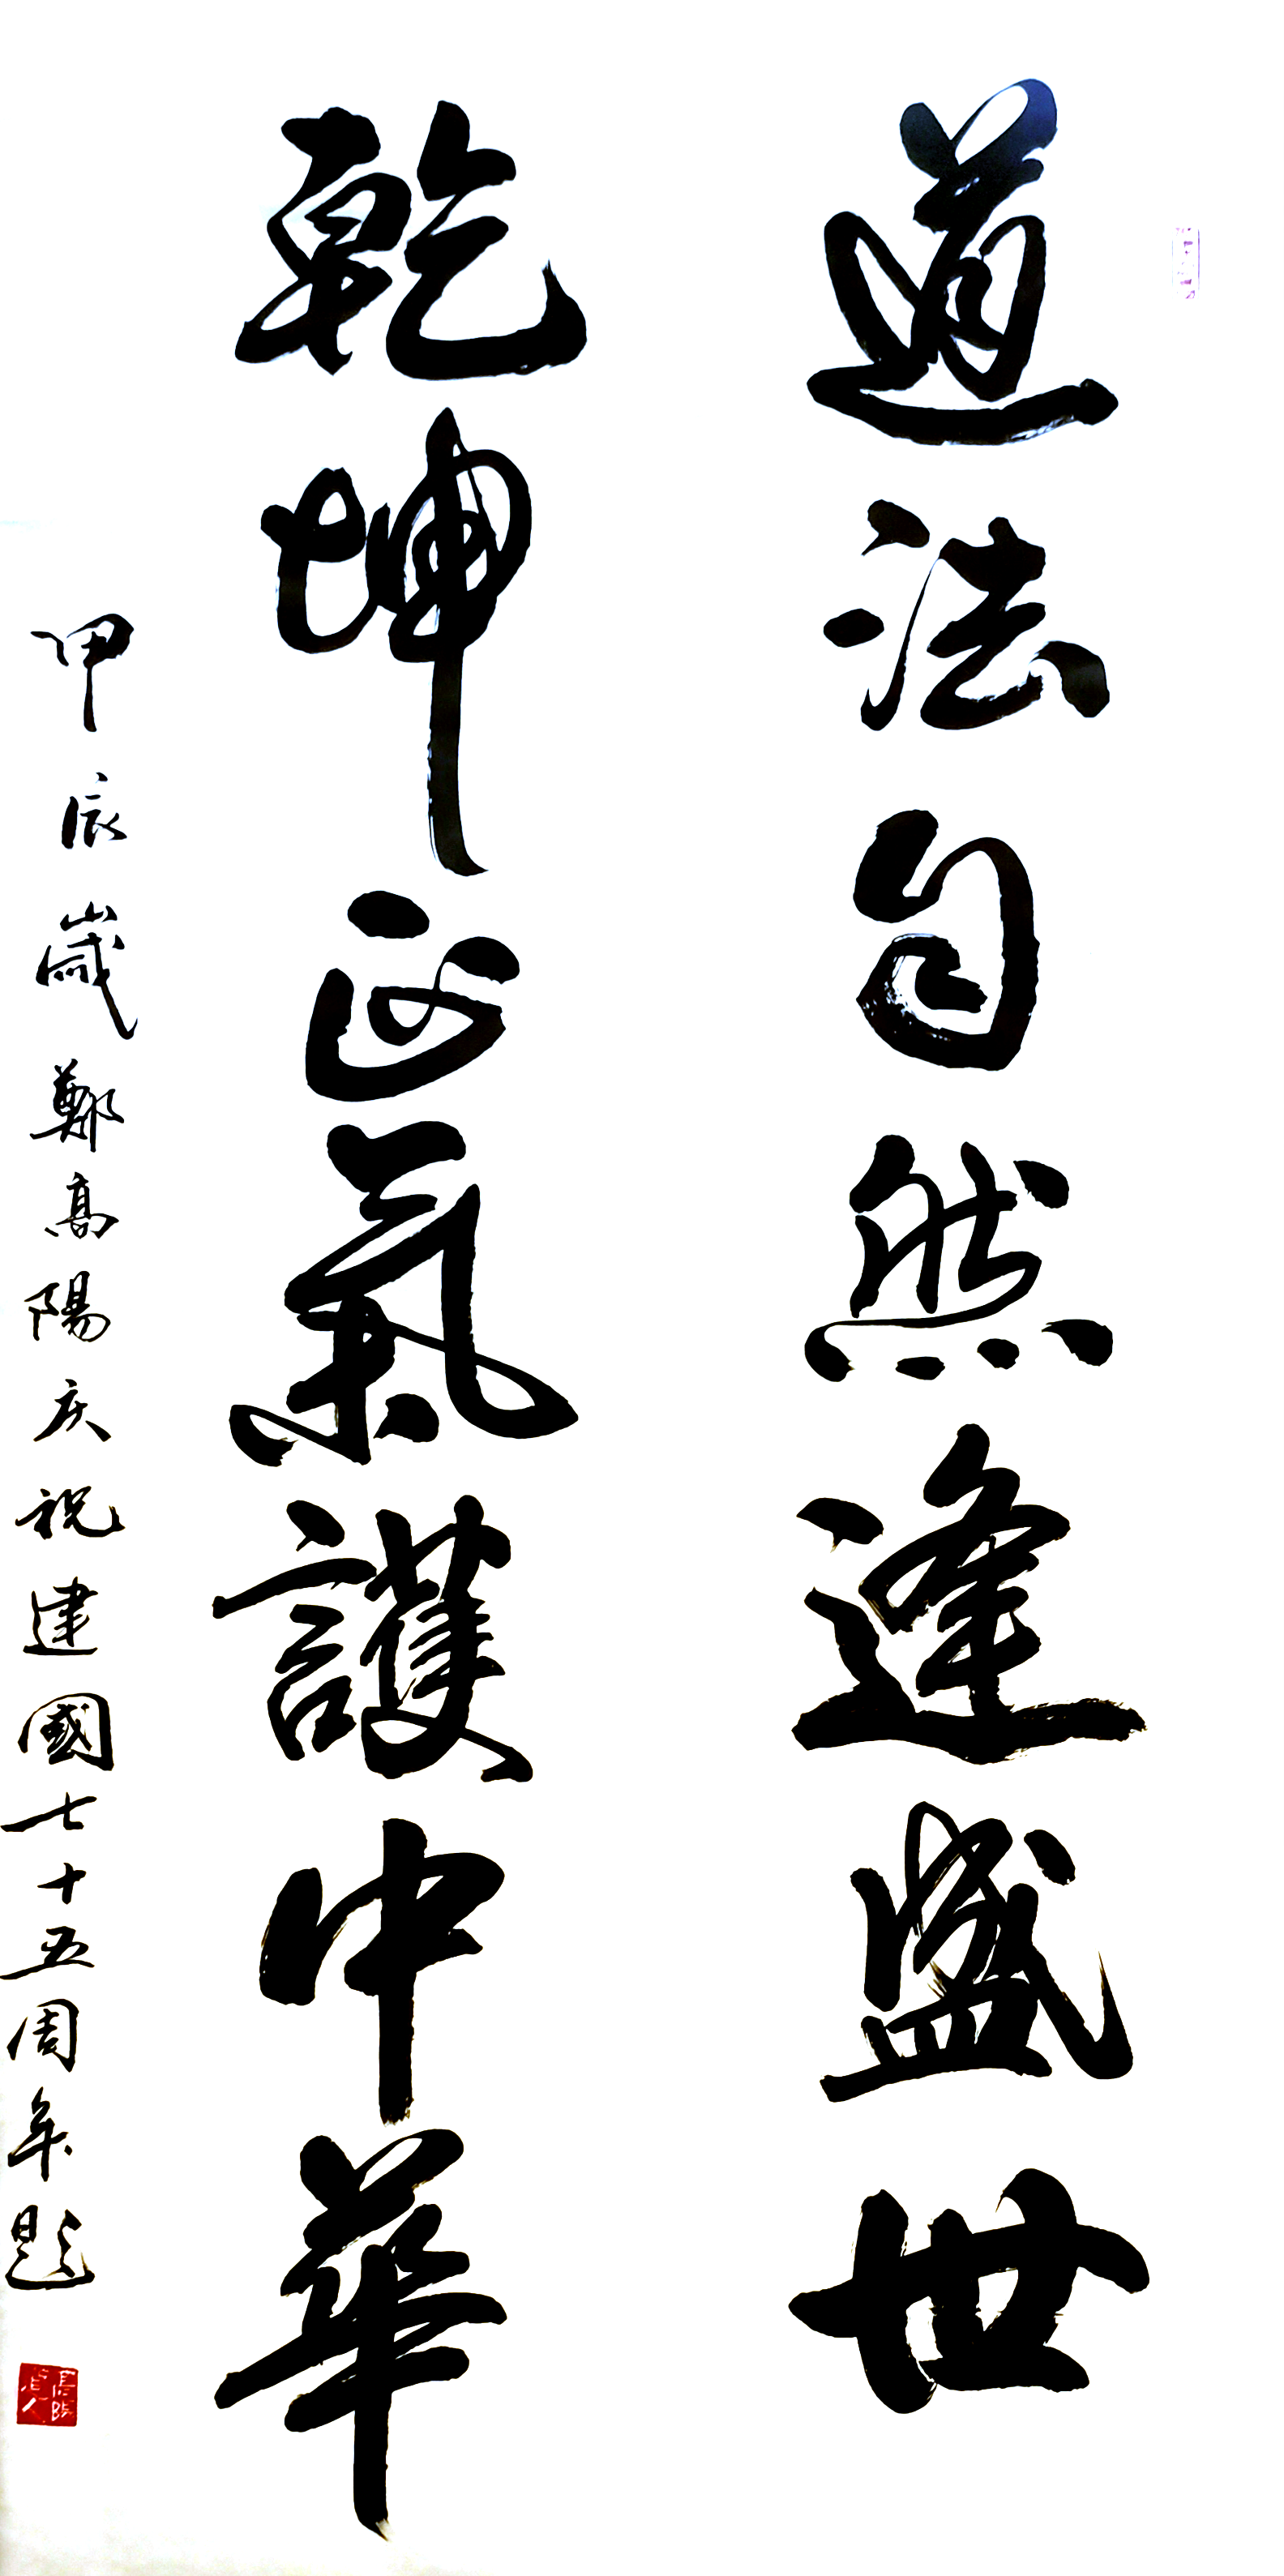 道法自然逢盛世
乾坤正氣護中華
甲辰歲鄭高陽庆祝建國七十五周年題